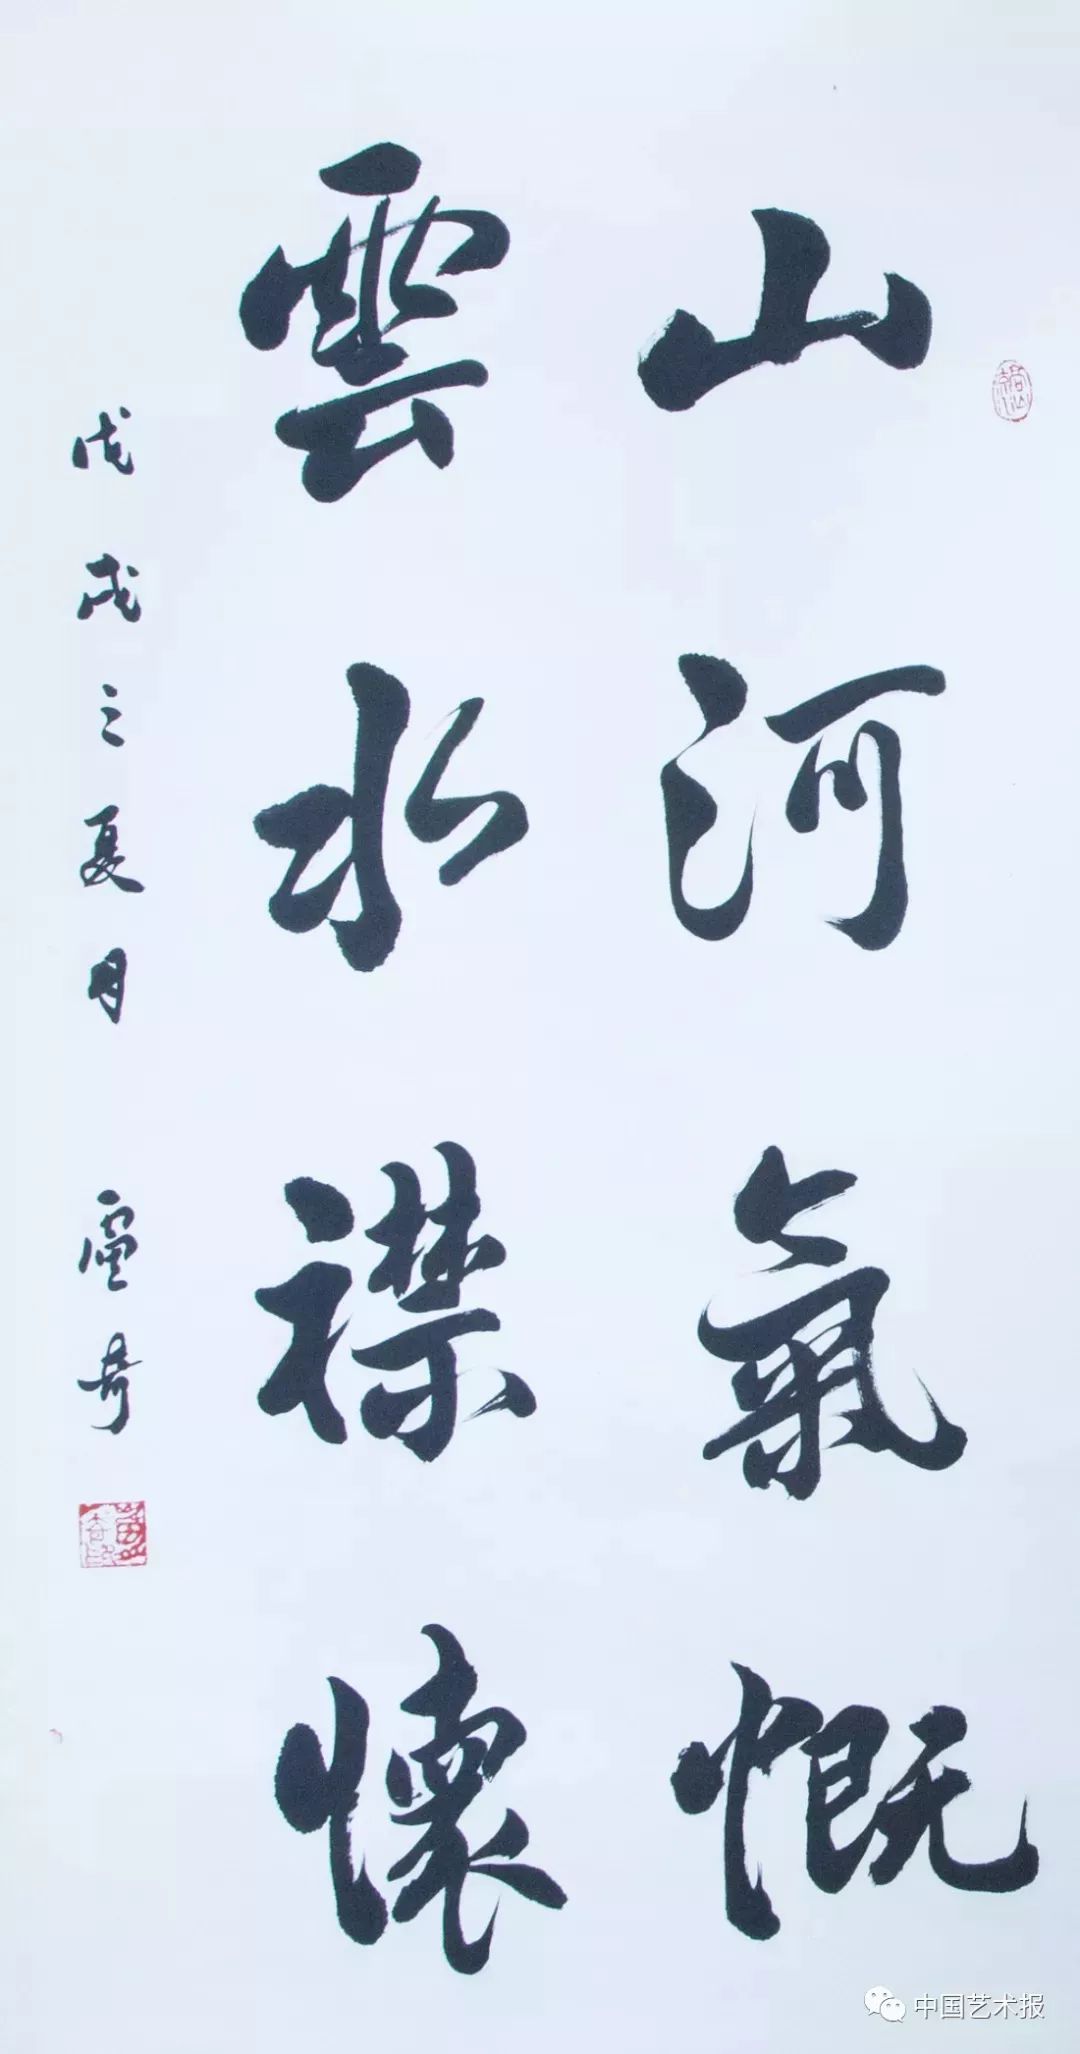 山河氣慨
雲水襟懷
戊戌之夏月 盧奇
中国艺术报